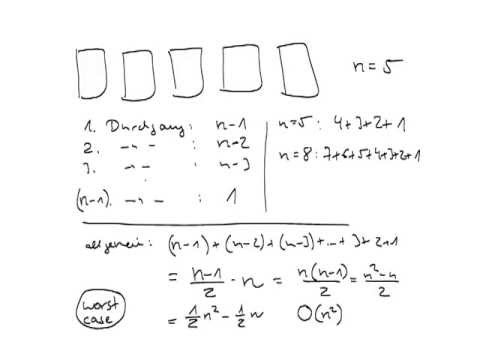 n=5
1. Durchgang: n-1
2. -"- : n-2
3. -"- n-3
(n-1). -"- : 1
n=5: 4+3+2+1
n=8: 7+6+5+4+3+2+1
allgemein: (n-1)+(n-2)+(n-3)+...+3+2+1
= \frac{n-1}{2} · n = \frac{n(n-1)}{2} = \frac{n²-n}{2}
worst case
= \frac{1}{2}n² - \frac{1}{2}n O(n²)